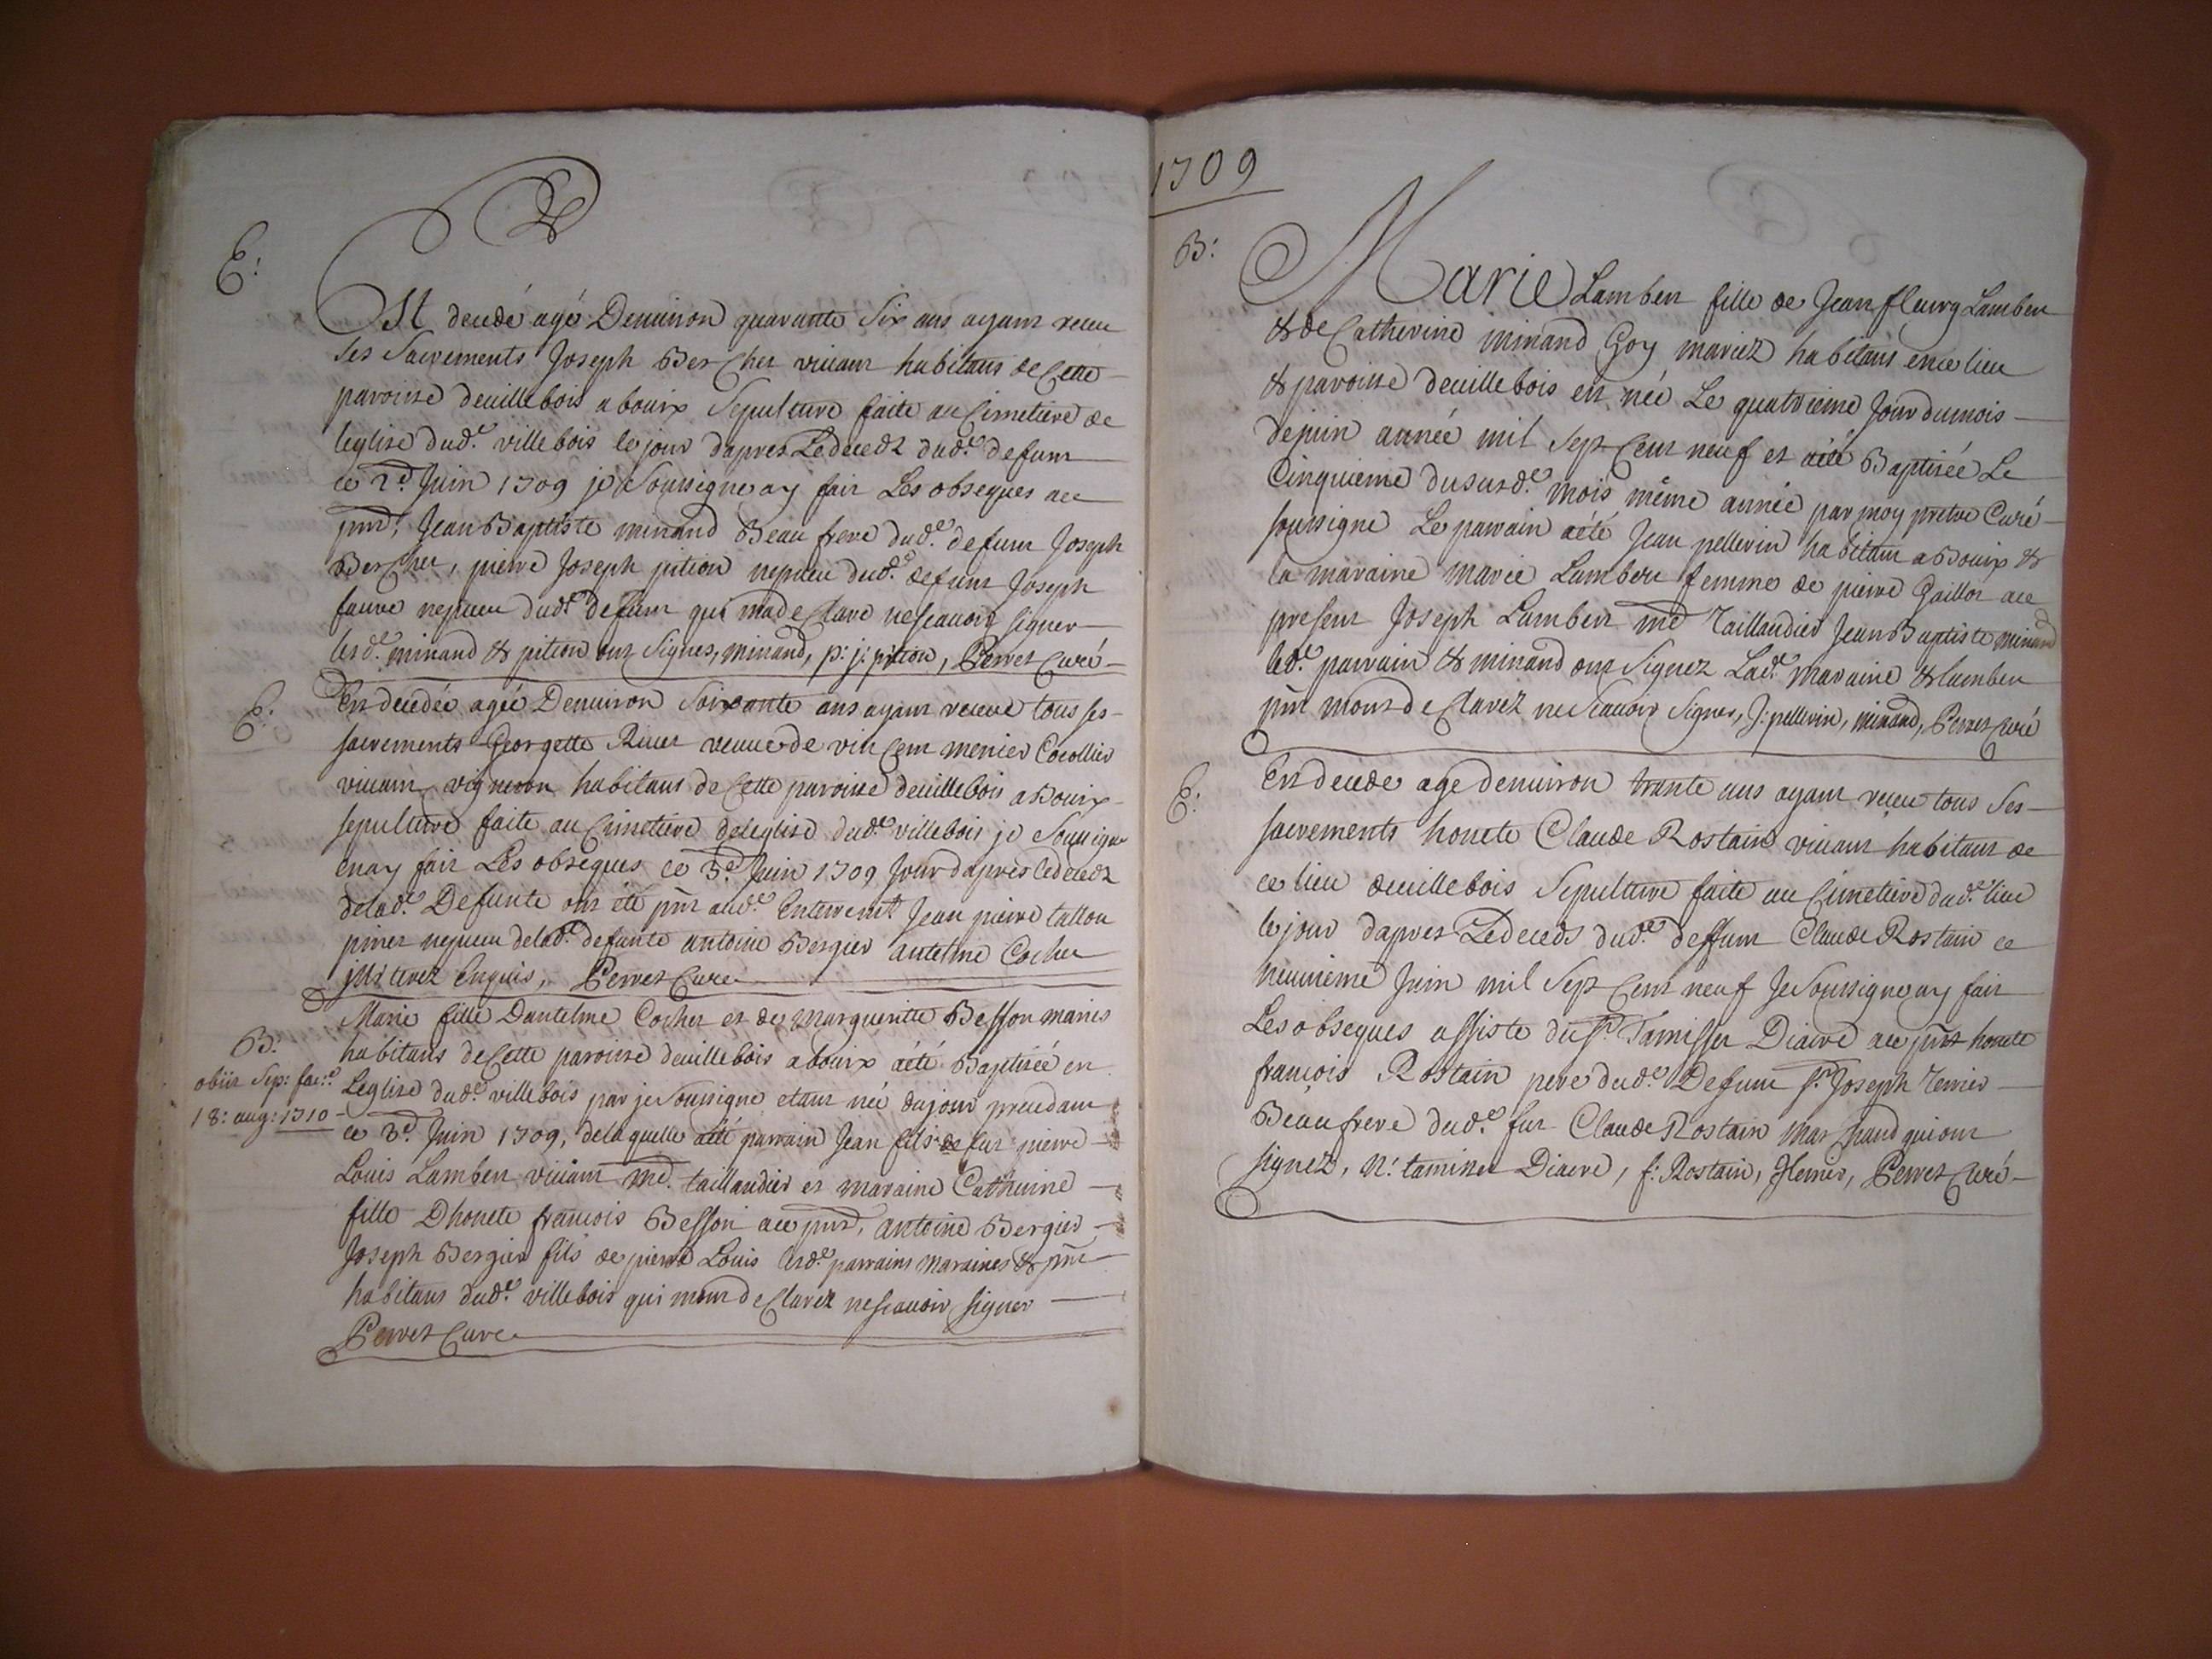 E:
Est decedé agé Denuiron quarante Six ans ayant receu
ses Sacrements Joseph Bercher viuant habitans de Cette
paroisse deuillebois a bouix Sepulture faite au Cimetiere de
leglise dud.e villebois le jour dapres Le decedz dud.e defunt
ce 2.d Juin 1709 je Soussigne ay fait Les obseques aec
pnt.s Jean Baptiste minand Beau frere dud.e defunt Joseph
Bercher, pierre Joseph pition nepueu dud.e defunt Joseph
faure nepueu dud.e defunt qui ma declare nescauoir signer
lesd.e minand & pition ont Signes, minand, p: j: pition, Perret Curé
E:
Est decedée agée Denuiron Soixante ans ayant receue tous ses
sacrements Georgette Riuet veuue de vincent menier Cocollier
viuant vigneron habitans de Cette paroisse deuillebois a Bouix
sepulture faite au Cimetiere deleglise dud.e villebois je Soussigne
enay fait Les obseques ce 3.e Juin 1709 Jour dapres le decedz
delad.e Defunte ont été pnt aud.e Enterrement Jean pierre tallon
pinet nepueu delad.e defunte antoine Bergier antelme Cocher
illiterez Enquis, Perret Cure
B:
obiit Sep: fac.e
18: aug: 1710
Marie fille Dantelme Cocher et de margueritte Besson maries
habitans de Cette paroisse deuillebois a bouix aété Baptisée en
Leglise dud.e villebois par je Soussigne etant née du jour precedant
ce 3.e Juin 1709, delaquelle aété parrain Jean fils de fut pierre
Louis Lambert viuant md. taillandier et maraine Catherine
fille Dhonete francois Besson aec pnt.s antoine Bergier
Joseph Bergier fils de pierre Louis lesd.e parrains maraines & pnt
habitans dud.e villebois qui mont declarez nescauoir signer
Perret Cure
1709
B:
Marie Lambert fille de Jean fleury Lambert
& de Catherine minand Goy mariez habitans ence lieu
& paroisse deuillebois est née Le quatrieme Jour du mois
dejuin année mil sept Cent neuf et aété Baptisée Le
Cinquieme dususd.e mois même année par moy pretre Curé
soussigne Le parrain aété Jean pellerin habitant a Bouix &
la maraine marie Lambert femme de pierre Gaillot aec
present Joseph Lambert md Taillandier Jean Baptiste minand
led.e parrain & minand ont Signez Lad.e maraine & lambert
pnt mont declarez nescauoir Signer, J: pellerin, minand, Perret Curé
E:
Est decede age denuiron trante ans ayant receu tous Ses
sacrements honete Claude Rostain viuant habitant de
ce lieu deuillebois Sepulture faite au Cimetiere dud.e lieu
le jour dapres Le deceds dud.e deffunt Claude Rostain ce
neuuieme Juin mil Sept Cent neuf Je Soussigne ay fait
Les obseques assiste du S.r Tamisser Diacre aec pnt honete
francois Rostain pere dud.e Defunt S.r Joseph Terrier
Beaufrere dud.e fut Claude Rostain marchand qui ont
signez, N: tamisser Diacre, f: Rostain, JTerrier, Perret Curé